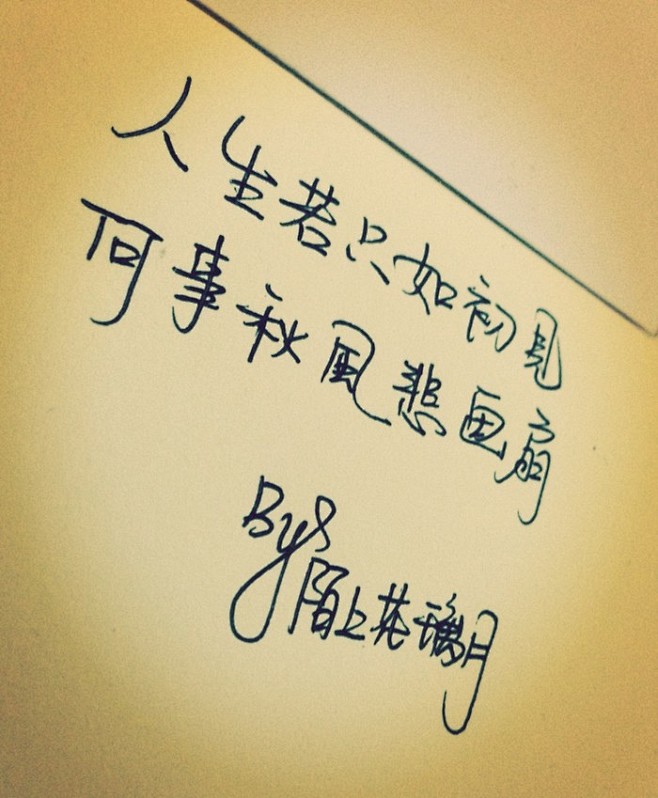 人生若只如初见
何事秋风悲画扇
By 陌上花璃月